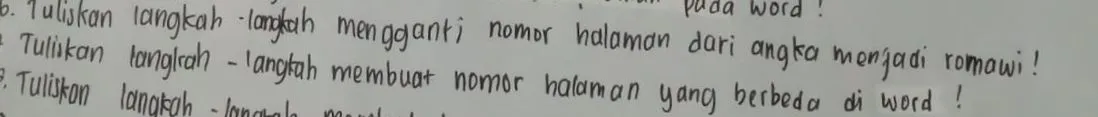 pada word !
6. Tuliskan langkah - langkah mengganti nomor halaman dari angka menjadi romawi !
Tuliskan langkah - langkah membuat nomor halaman yang berbeda di word !
Tuliskan langkah -